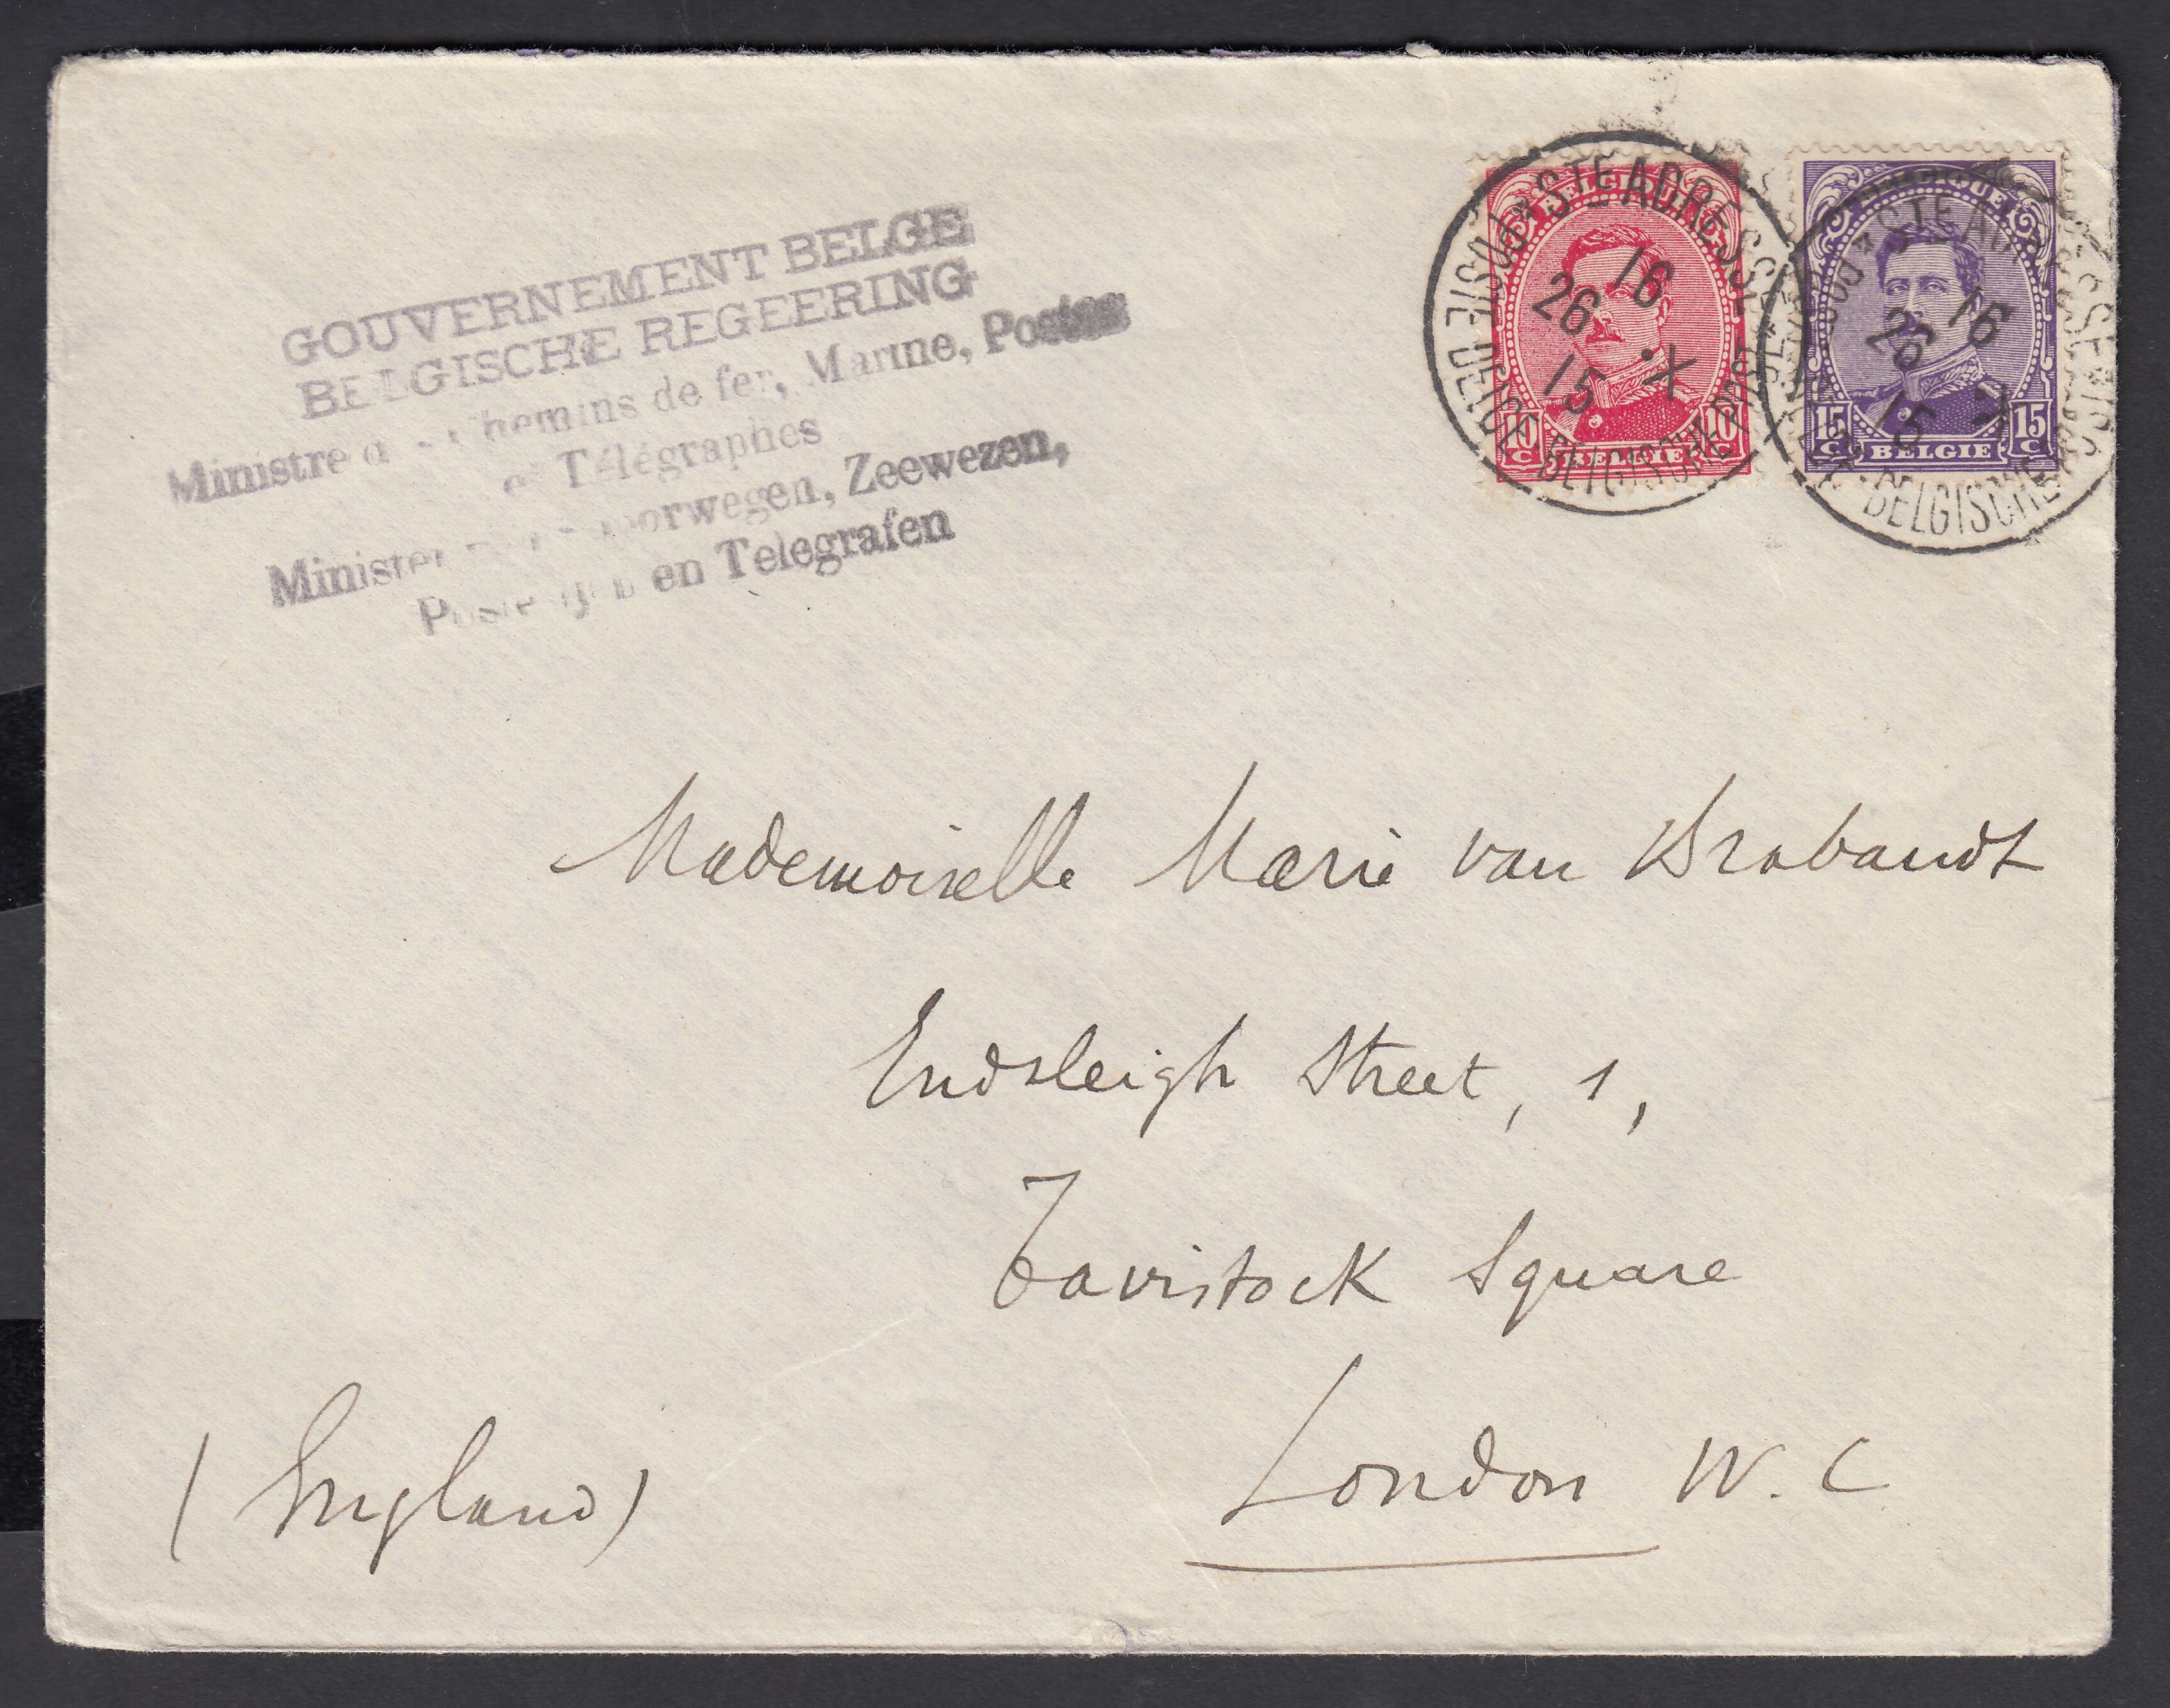 GOUVERNEMENT BELGE
BELGISCHE REGEERING
Ministre Chemins de fer, Marine, Postes
et Télégraphes
Minister Spoorwegen, Zeewezen,
en Telegrafen
STE ADRESSE
POSTE BELGE BELGISCHE POST
16
26 X
15
BELGIQUE
10 C BELGIE 10 C
STE ADRESSE
BELGISCHE
16
26 X
15
BELGIQUE
15 C BELGIE 15 C
Mademoiselle Marie van Brabandt
Endsleigh Street, 1,
Tavistock Square
London W.C
(England)